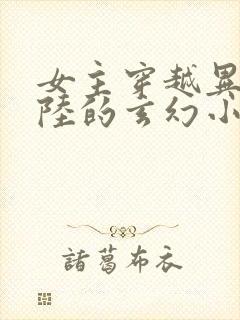 女主穿越異
陸的玄幻小
諸葛布衣